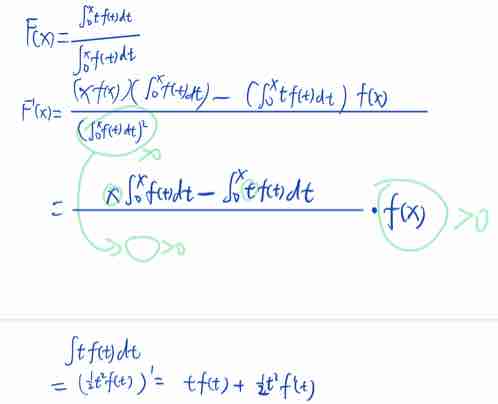 F(x) = ∫₀ˣ t f(t) dt / ∫₀ˣ f(t) dt
F'(x) = (x f(x)) (∫₀ˣ f(t) dt) − (∫₀ˣ t f(t) dt) f(x) / (∫₀ˣ f(t) dt)²
>0
= x ∫₀ˣ f(t) dt − ∫₀ˣ t f(t) dt / >0 · f(x) >0
∫ t f(t) dt
= (½t² f(t))' = t f(t) + ½t² f'(t)